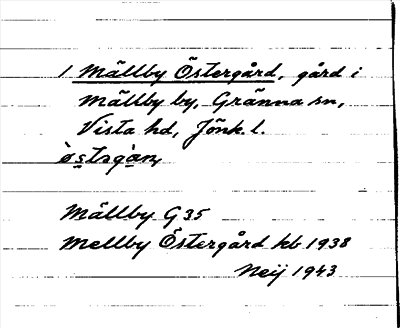 1 Mällby Östergård, gård i
Mällby by, Gränna sn,
Vista hd, Jönk. l.
Mällby G 35
Mellby Östergård kb 1938
Neij 1943